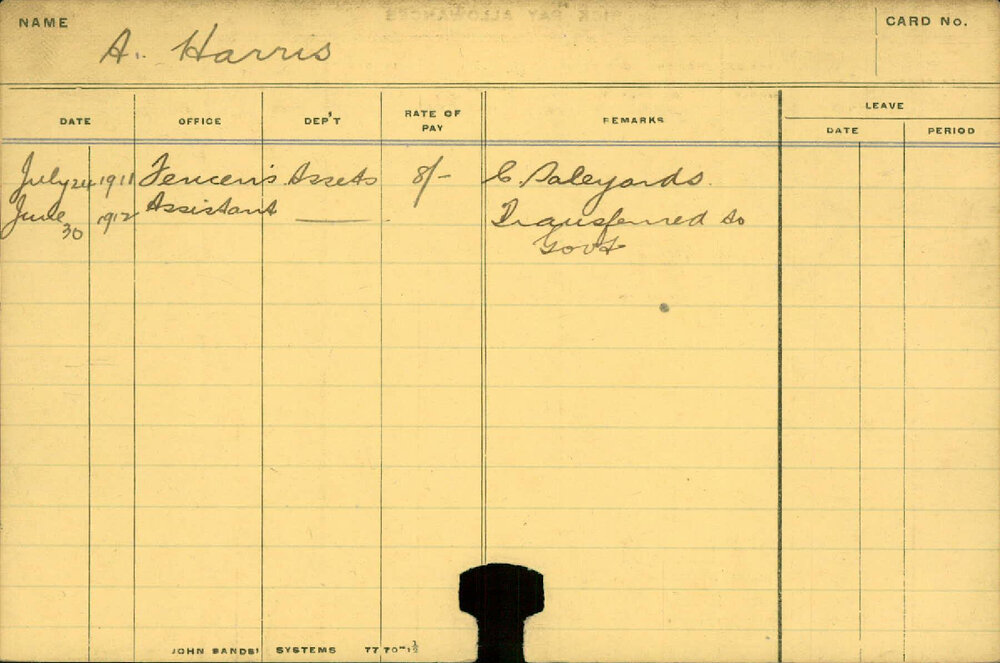 NAME A. Harris CARD No.
DATE OFFICE DEP'T RATE OF PAY REMARKS LEAVE
DATE PERIOD
July 24 1911 Fencer's Assets 8/- C. Saleyards.
June 30 1912 Assistant Transferred to
Govt
JOHN SANDS' SYSTEMS